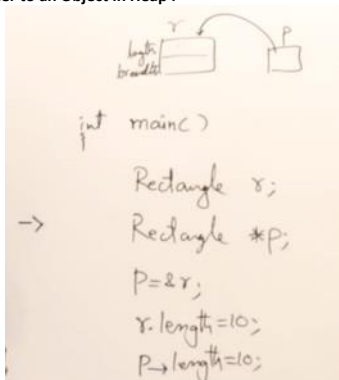 er to an Object in Heap :
r
p
length
breadth
int main()
{
Rectangle r;
→ Rectangle *p;
p=&r;
r.length=10;
p→length=10;